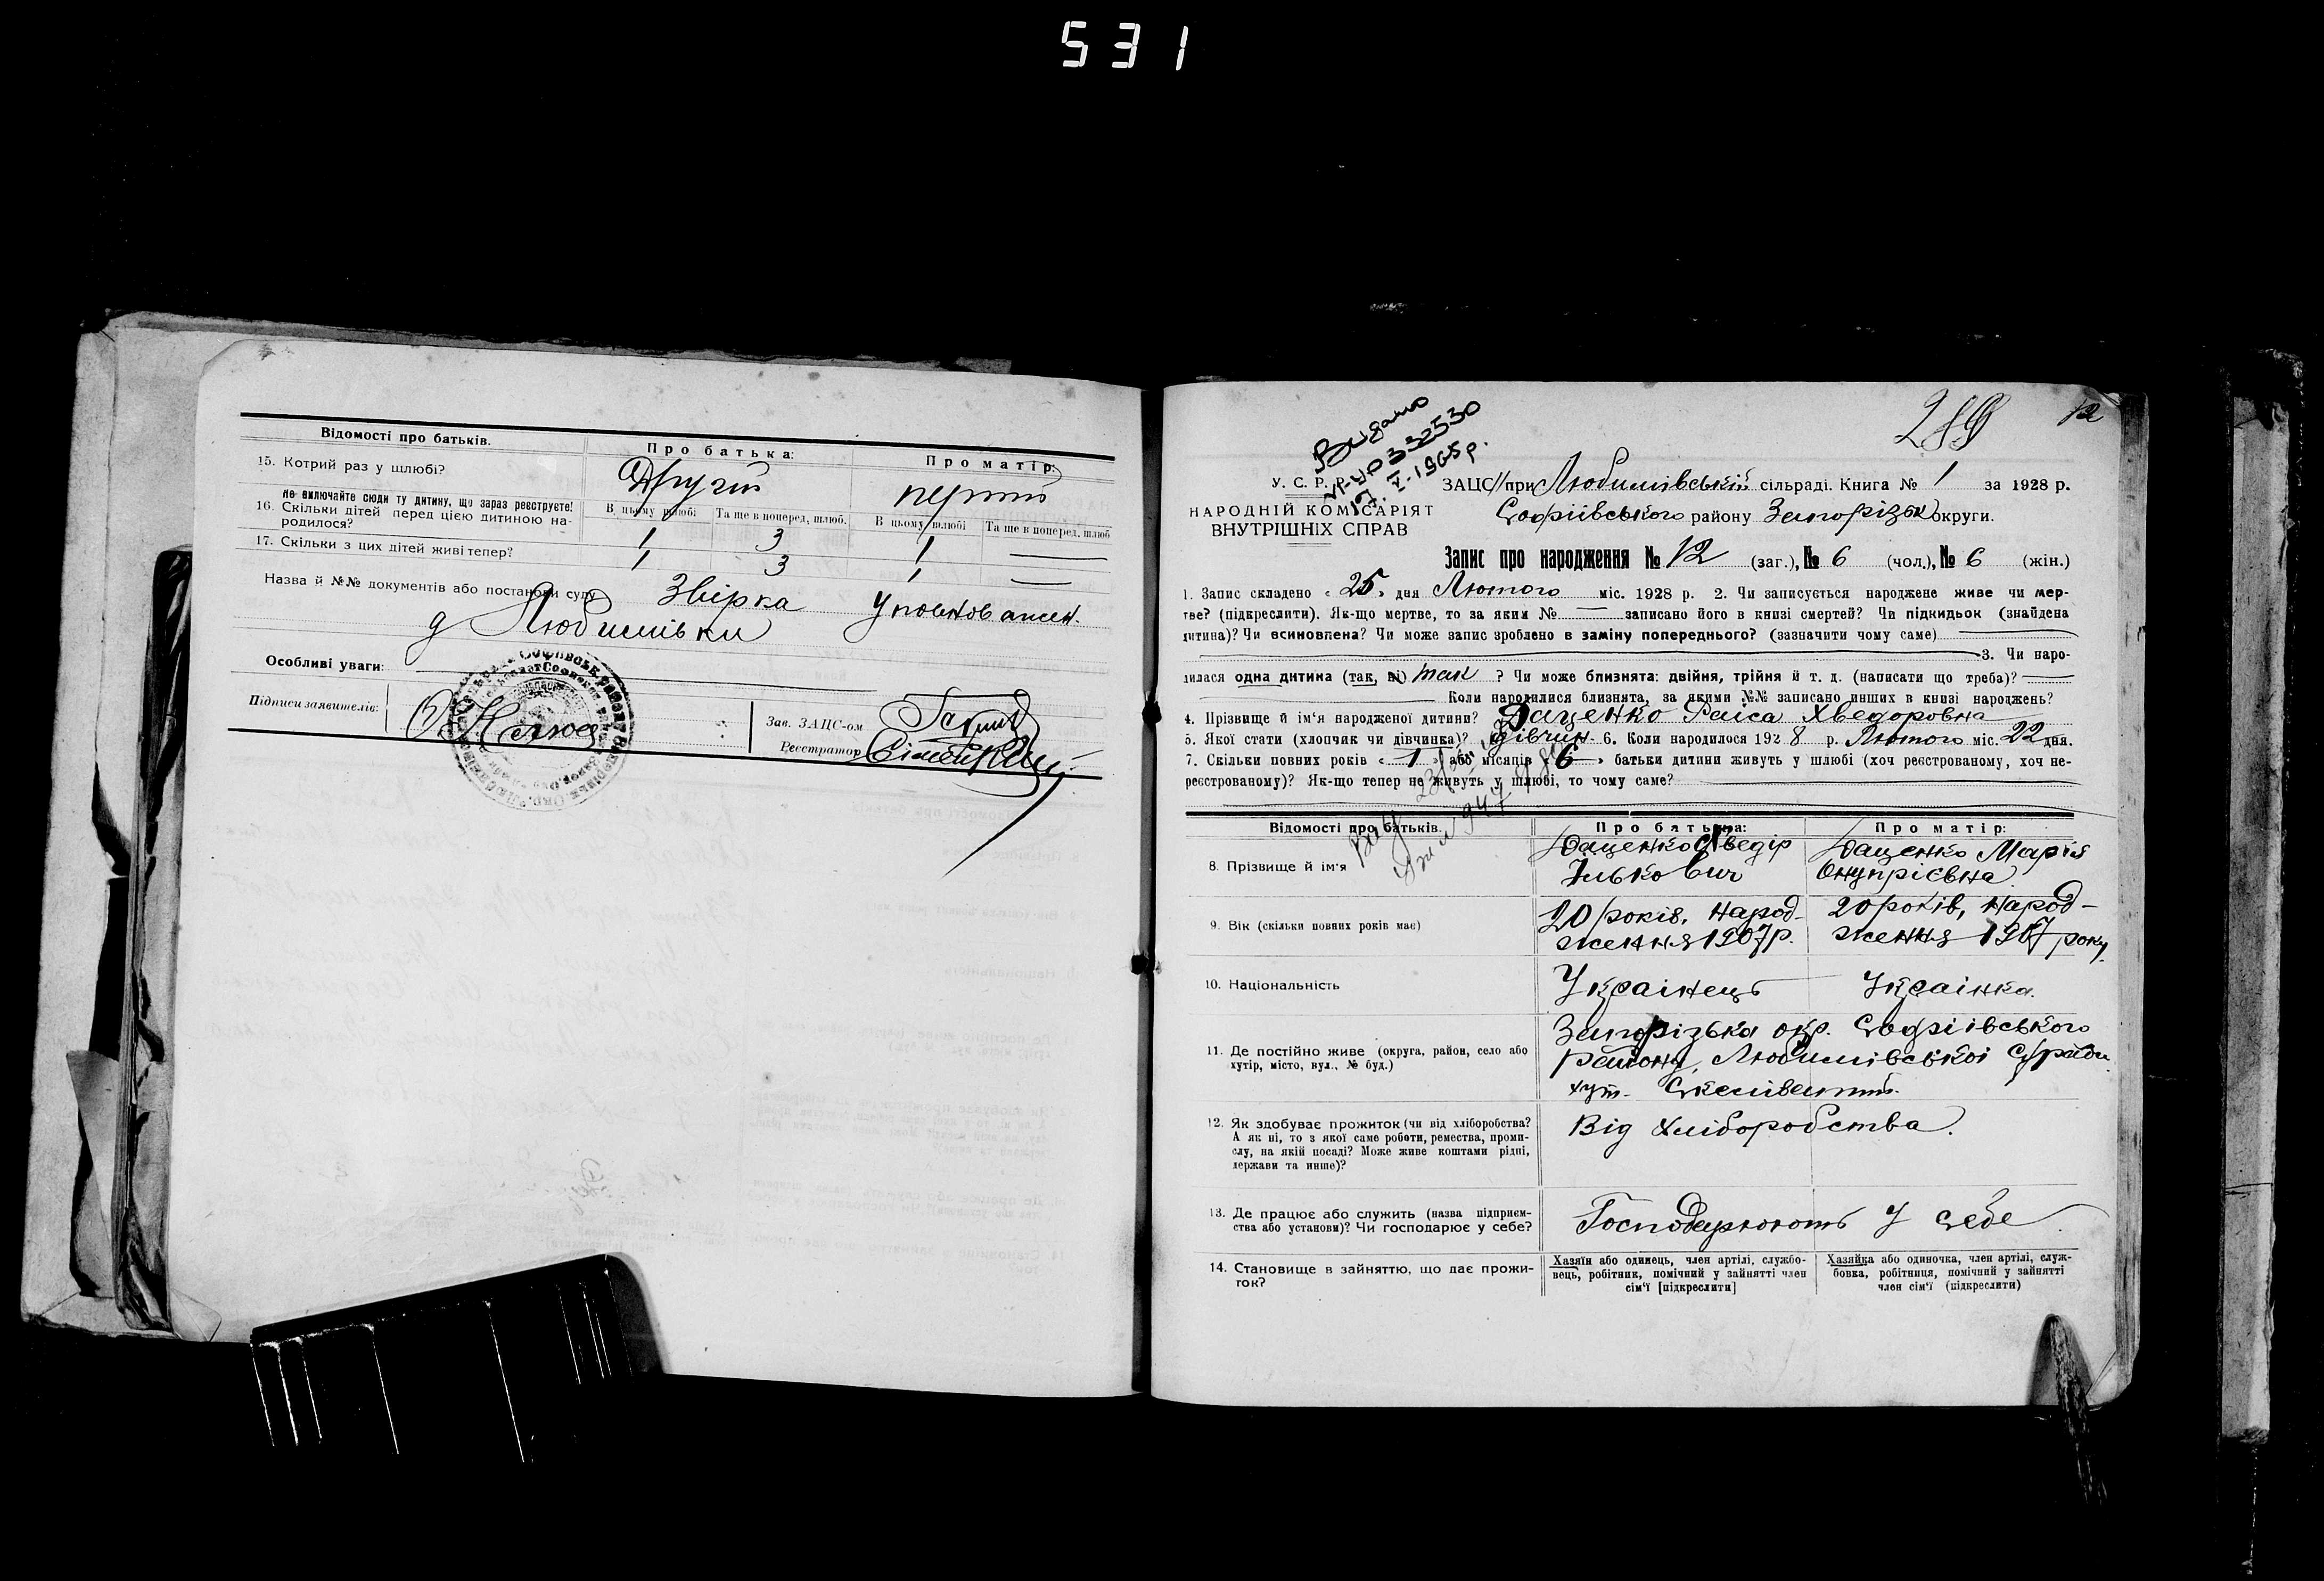 531
Відомості про батьків.
Про батька:
Про матір:
15. Котрий раз у шлюбі?
Другий
перший
Не включайте сюди ту дитину, що зараз реєструєте!
16. Скільки дітей перед цією дитиною народилося?
В цьому шлюбі
Та ще в поперед. шлюб.
В цьому шлюбі
Та ще в поперед. шлюб
1
3
1
17. Скільки з цих дітей живі тепер?
1
3
1
Назва й №№ документів або постанови суду
Звірка
Любимівки
Особливі уваги:
Підписи заявителів:
Зав. ЗАЦС-ом
Реєстратор
289
12
Видано
332530
1965р.
У. С. Р. Р.
НАРОДНІЙ КОМІСАРІЯТ
ВНУТРІШНІХ СПРАВ
ЗАЦС при Любимівській сільраді. Книга № 1 за 1928 р.
Софіївського району Запорізьк округи.
Запис про народження № 12 (заг.), № 6 (чол.), № 6 (жін.)
1. Запис складено « 25 » дня Лютого міс. 1928 р. 2. Чи записується народжене живе чи мер-
тве? (підкреслити). Як-що мертве, то за яким № — записано його в книзі смертей? Чи підкидьок (знайдена
дитина)? Чи всиновлена? Чи може запис зроблено в заміну попереднього? (зазначити чому саме)
3. Чи наро-
дилася одна дитина (так, ні) так ? Чи може близнята: двійня, трійня й т. д. (написати що треба)? —
Коли народилися близнята, за якими №№ записано инших в книзі народжень?
4. Прізвище й ім'я народженої дитини? Даценко Раіса Хведоровна
5. Якої стати (хлопчик чи дівчинка)? дівчин. 6. Коли народилося 1928 р. Лютого міс. 22 дня.
7. Скільки повних років « 1 » або місяців « 6 » батьки дитини живуть у шлюбі (хоч реєстрованому, хоч не-
реєстрованому)? Як-що тепер не живуть у шлюбі, то чому саме?
Відомості про батьків.
Про батька:
Про матір:
8. Прізвище й ім'я
Даценко Хведір
Ількович
Даценко Марія
Онупрієвна
9. Вік (скільки повних років має)
20 років, народ-
ження 1907р.
20 років, народ-
ження 1907 року.
10. Національність
Украінець
Украінка.
11. Де постійно живе (округа, район, село або
хутір, місто, вул., № буд.)
Запорізька окр. Софіівського
району, Любимівськоі с/ради
хут.
12. Як здобуває прожиток (чи від хліборобства?
А як ні, то з якої саме роботи, ремества, проми-
слу, на якій посаді? Може живе коштами рідні,
держави та инше)?
Від хліборобства.
13. Де працює або служить (назва підприєм-
ства або установи)? Чи господарює у себе?
Господарюють у себе
14. Становище в зайняттю, що дає прожи-
ток?
Хазяїн або одинець, член артілі, службо-
вець, робітник, помічний у зайнятті член
сім'ї [підкреслити]
Хазяйка або одиночка, член артілі, служ-
бовка, робітниця, помічний у зайнятті
член сім'ї (підкреслити)